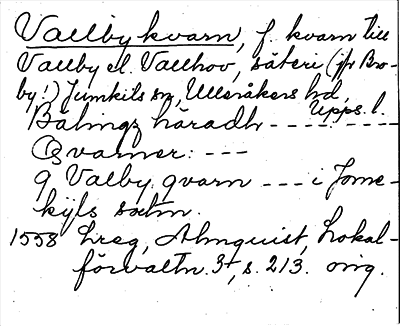 Vallby kvarn, f. kvarn till
Vallby el. Vallhov, säteri (jfr Bro-
by!) Jumkils sn, Ulleråkers hd,
Upps. l.
Bälings häradh - - - - - -
Qvarner: - - -
9 Valby qvarn - - - i Jome-
kijls sochn.
1558 Lreg, Almquist, Lokal-
förvaltn. 3+, s. 213. orig.